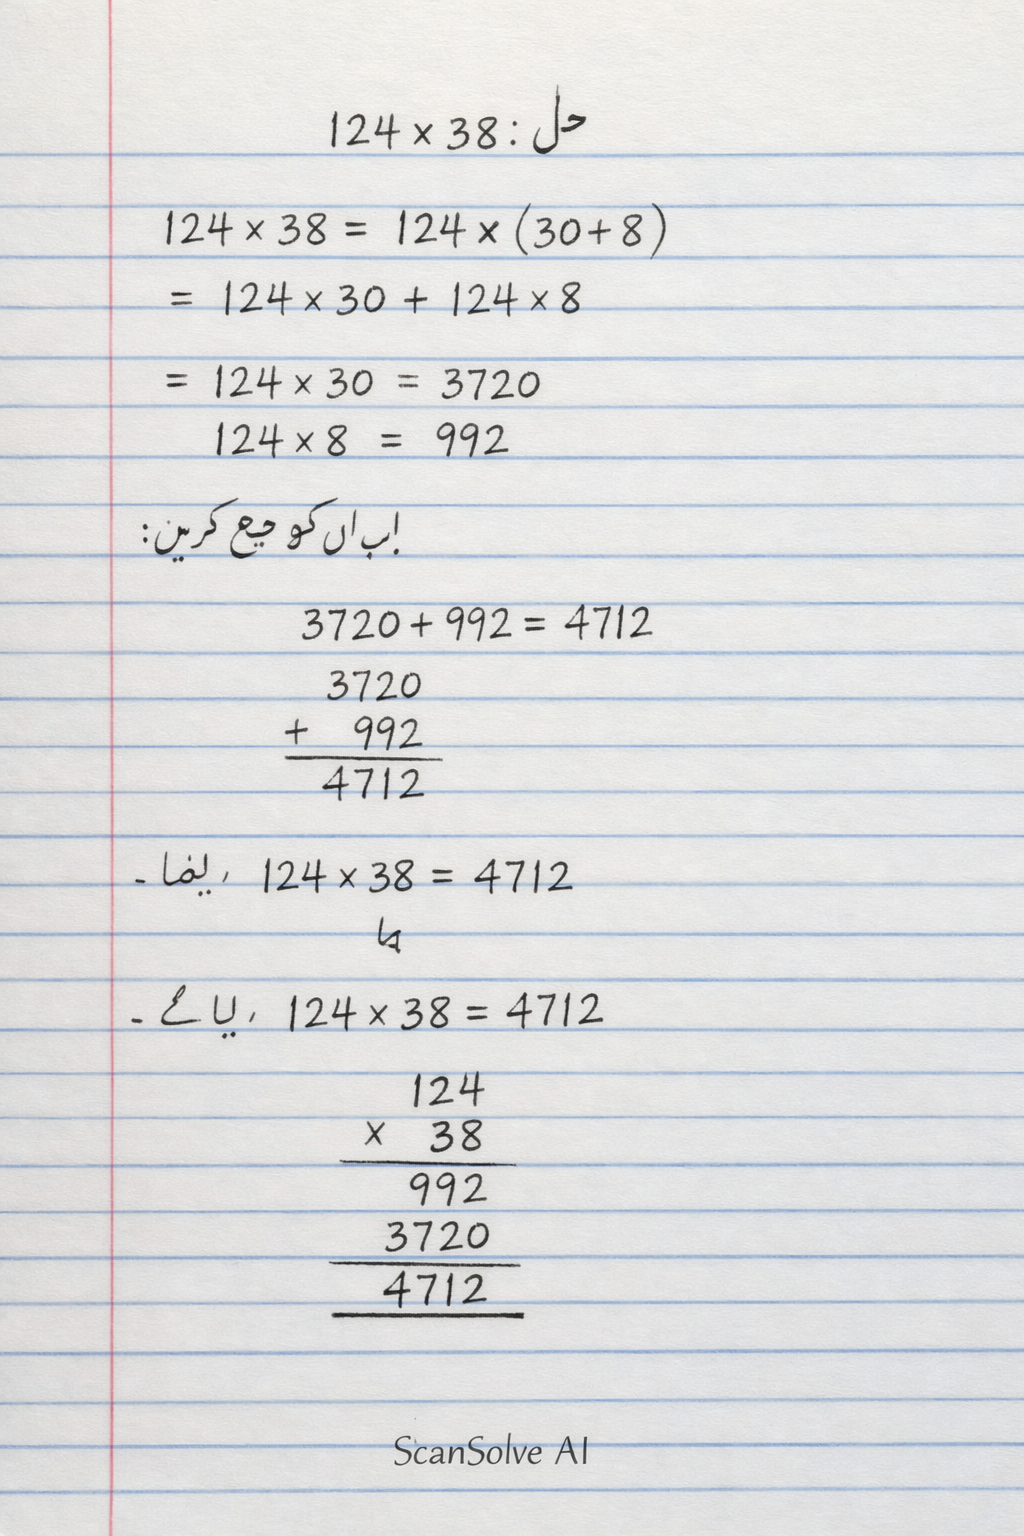 حل: 124 × 38
124 × 38 = 124 × (30+8)
= 124 × 30 + 124 × 8
= 124 × 30 = 3720
124 × 8 = 992
اب ان کو جمع کریں:
3720 + 992 = 4712
3720
+ 992
4712
124 × 38 = 4712
124 × 38 = 4712
124
× 38
992
3720
4712
ScanSolve AI